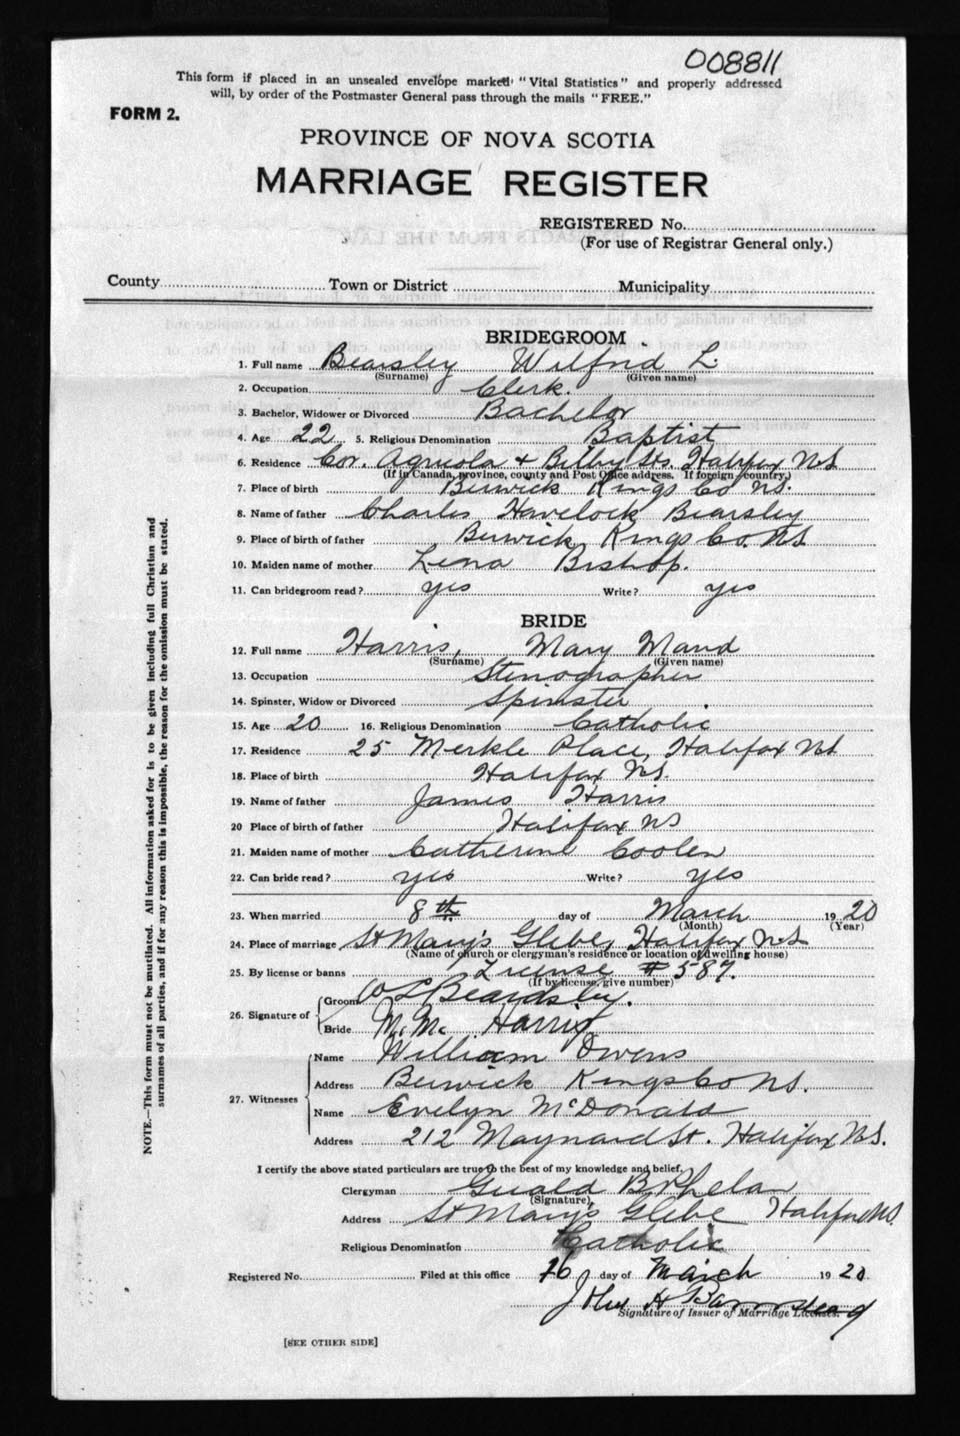 008811
This form if placed in an unsealed envelope marked "Vital Statistics" and properly addressed
will, by order of the Postmaster General pass through the mails "FREE."
FORM 2.
PROVINCE OF NOVA SCOTIA
MARRIAGE REGISTER
REGISTERED No.
(For use of Registrar General only.)
County Town or District Municipality
BRIDEGROOM
1. Full name Bearsley Wilfrid L.
(Surname) (Given name)
2. Occupation Clerk.
3. Bachelor, Widower or Divorced Bachelor
4. Age 22 5. Religious Denomination Baptist
6. Residence Cor. Agricola + Bilby Sts. Halifax NS
(If in Canada, province, county and Post Office address. If foreign country,)
7. Place of birth Berwick Kings Co NS.
8. Name of father Charles Havelock Bearsley
9. Place of birth of father Berwick Kings Co. NS
10. Maiden name of mother Lena Bishop.
11. Can bridegroom read? yes Write? yes
BRIDE
12. Full name Harris, Mary Maud
(Surname) (Given name)
13. Occupation Stenographer
14. Spinster, Widow or Divorced Spinster
15. Age 20 16. Religious Denomination Catholic
17. Residence 25 Merkle Place, Halifax NS
18. Place of birth Halifax NS.
19. Name of father James Harris
20 Place of birth of father Halifax NS
21. Maiden name of mother Catherine Coolen
22. Can bride read? yes Write? yes
23. When married 8th day of March 1920
(Month) (Year)
24. Place of marriage St Mary's Glebe, Halifax NS
(Name of church or clergyman's residence or location of dwelling house)
25. By license or banns License # 587.
(If by license, give number)
26. Signature of Groom W L Beardsley.
Bride M. M. Harris
27. Witnesses Name William Owens
Address Berwick Kings Co NS.
Name Evelyn McDonald
Address 212 Maynard St. Halifax NS.
I certify the above stated particulars are true to the best of my knowledge and belief.
Clergyman Gerald B Phelan
(Signature)
Address St Mary's Glebe Halifax NS.
Religious Denomination Catholic
Registered No. Filed at this office 16 day of March 1920.
John H
Signature of Issuer of Marriage Licenses.
[SEE OTHER SIDE]
NOTE.—This form must not be mutilated. All information asked for is to be given including full Christian and
surnames of all parties, and if for any reason this is impossible, the reason for the omission must be stated.